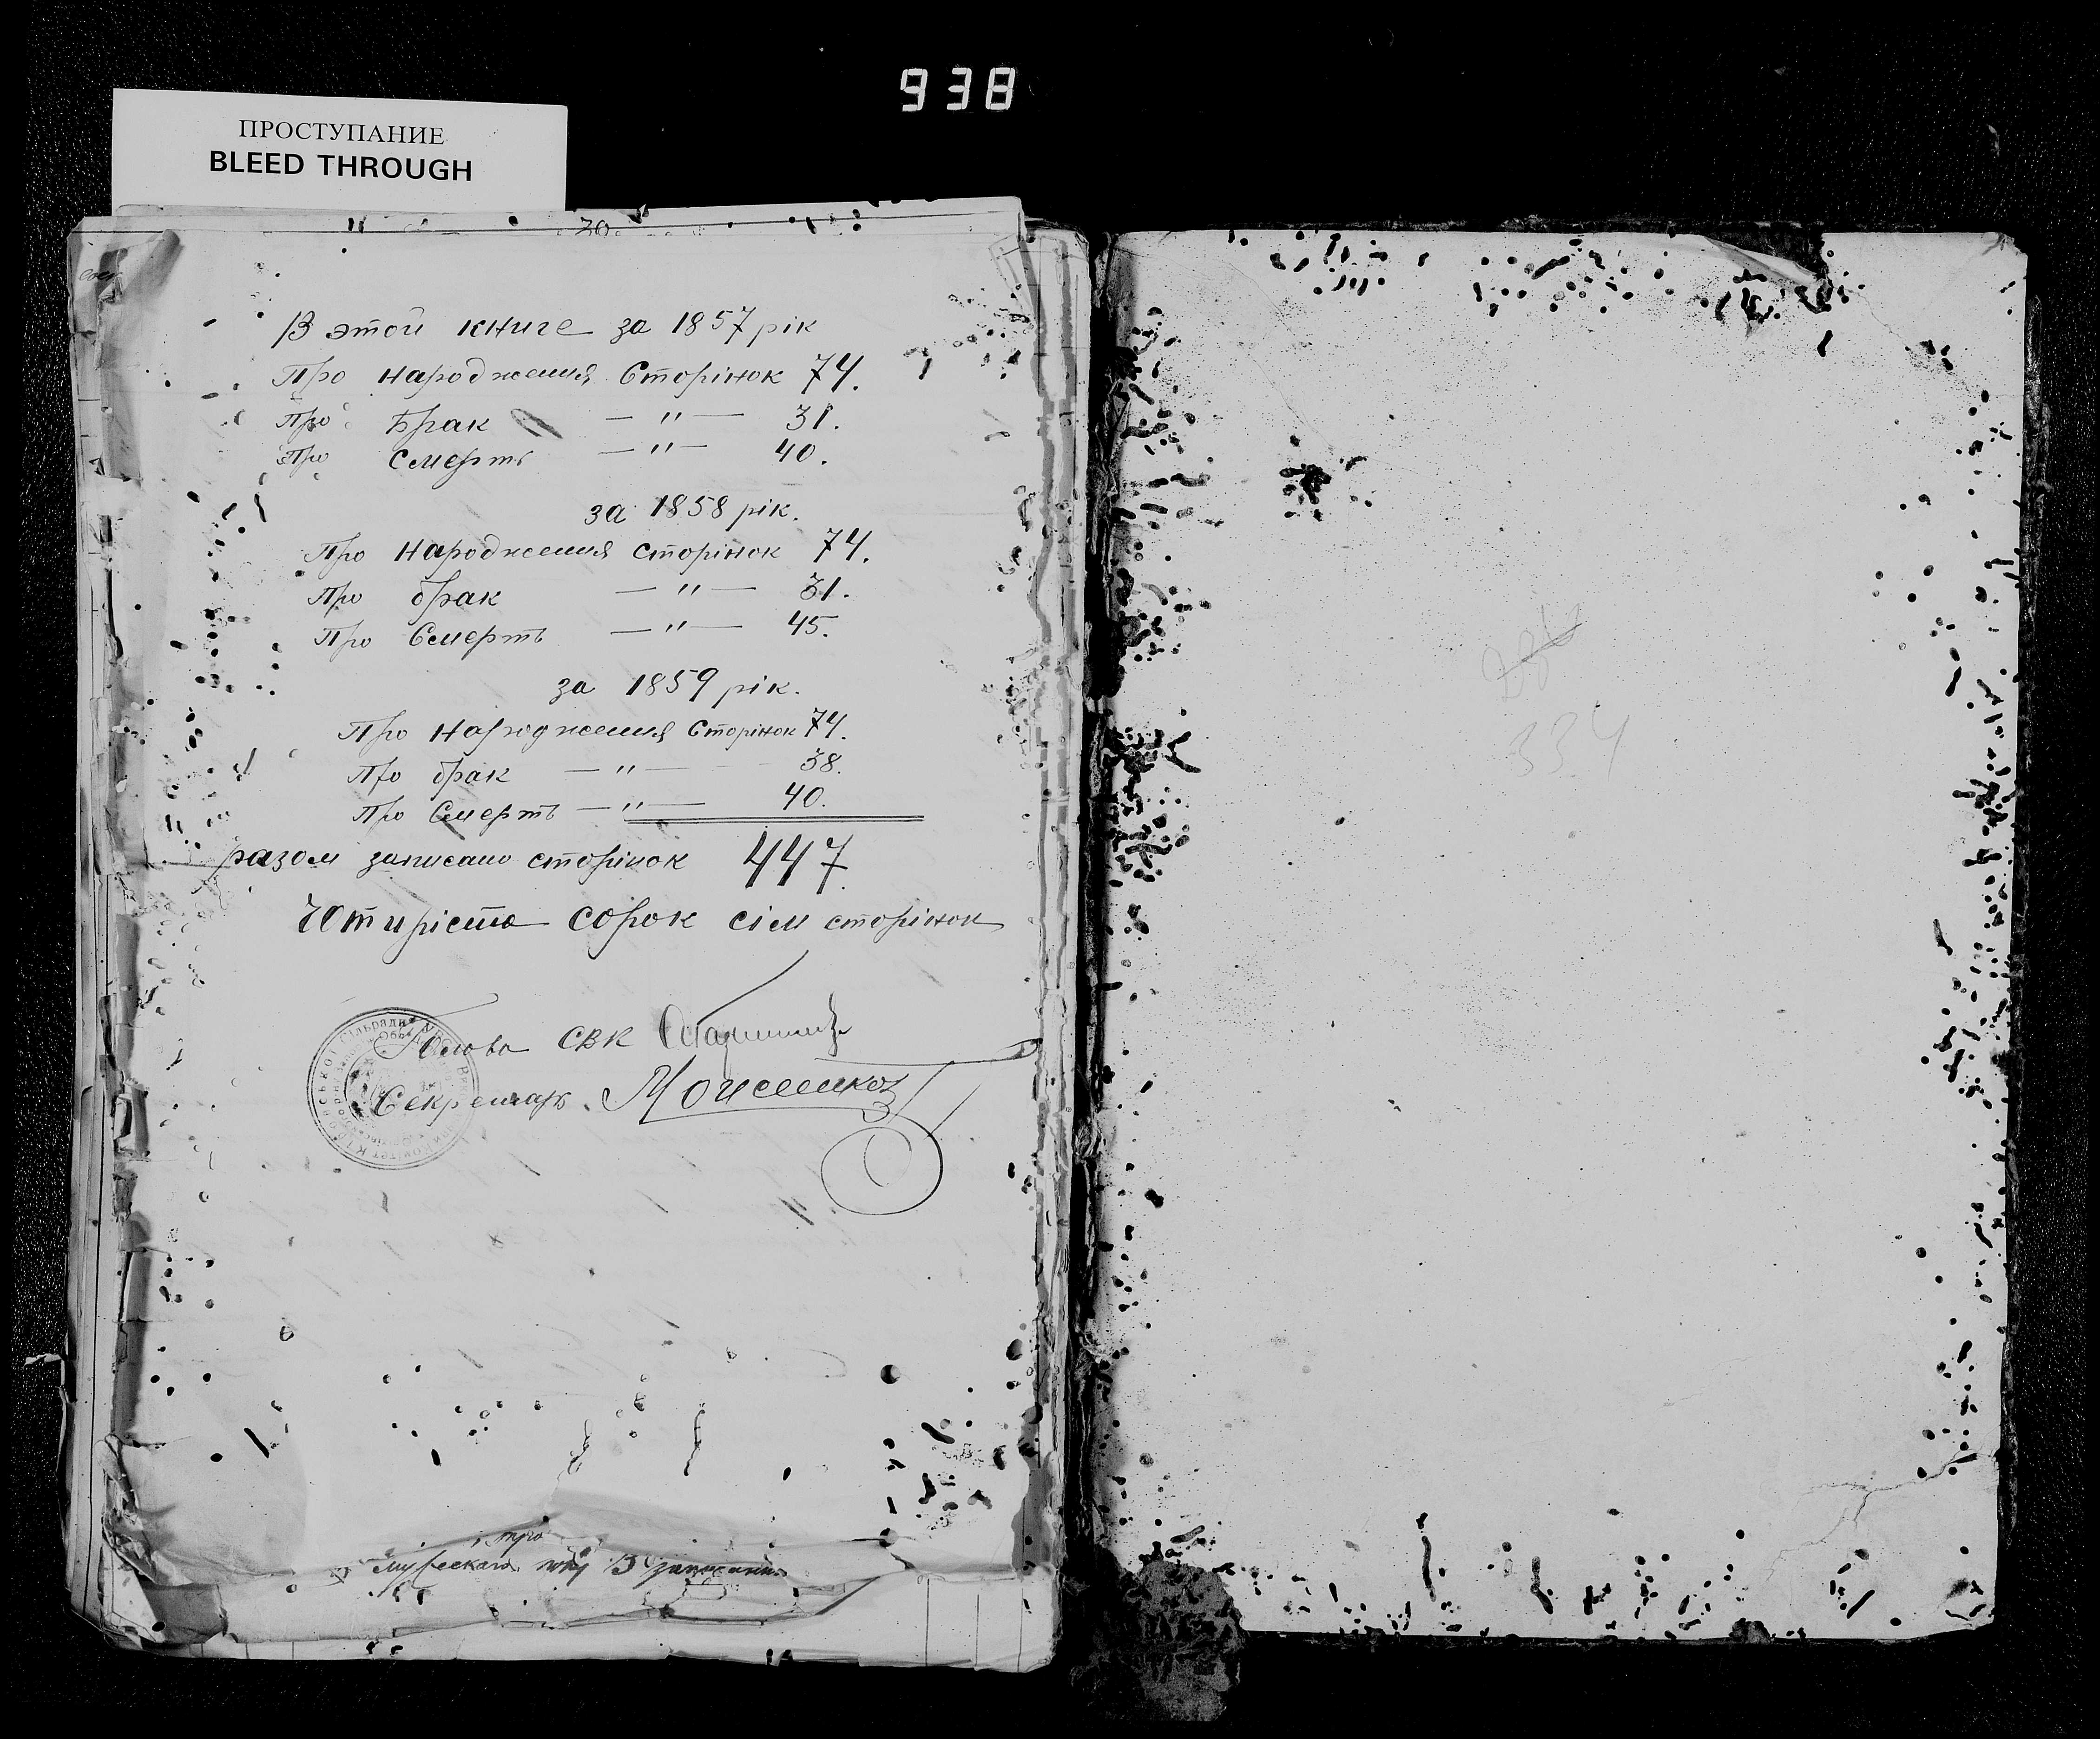 938
ПРОСТУПАНИЕ
BLEED THROUGH
30
В этой книге за 1857 рік
Про народження Сторінок 74.
Про Брак — " — 31.
Про Смерть — " — 40.
за 1858 рік.
Про Народження сторінок 74.
Про брак — " — 31.
Про Смерть — " — 45.
за 1859 рік.
Про Народження Сторінок 74.
Про брак — " — 38.
Про Смерть — " — 40.
разом записано сторінок 447
Чотиріста сорок сім сторінок
Голова СВК
Секретарь
334